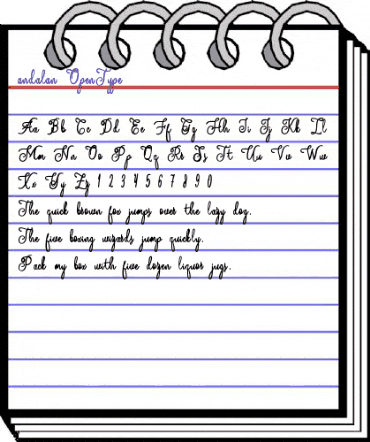 andalan OpenType
Aa Bb Cc Dd Ee Ff Gg Hh Ii Jj Kk Ll
Mm Nn Oo Pp Qq Rr Ss Tt Uu Vv Ww
Xx Yy Zz 1 2 3 4 5 6 7 8 9 0
The quick brown fox jumps over the lazy dog.
The five boxing wizards jump quickly.
Pack my box with five dozen liquor jugs.